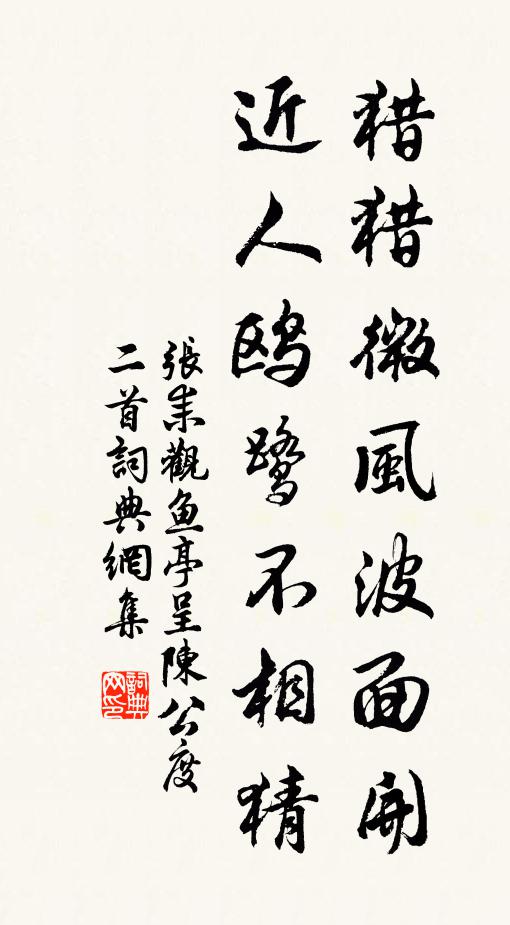 猎猎微風波面開
近人鸥鹭不相猜
張耒觀鱼亭呈陳公度
二首詞典網集
詞典网印